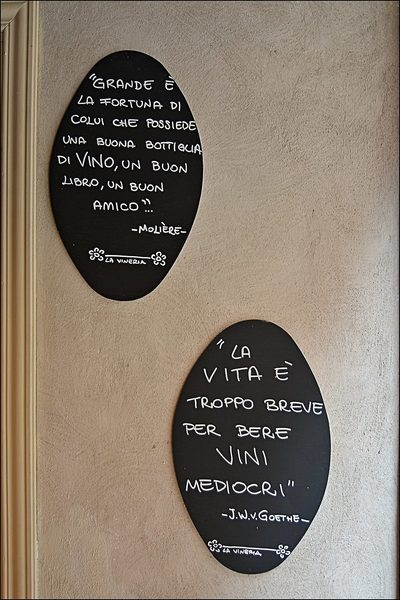 "GRANDE È
LA FORTUNA DI
COLUI CHE POSSIEDE
UNA BUONA BOTTIGLIA
DI VINO, UN BUON
LIBRO, UN BUON
AMICO"...
-MOLIÈRE-
LA VINERIA
"LA
VITA È
TROPPO BREVE
PER BERE
VINI
MEDIOCRI"
-J.W.V.GOETHE-
LA VINERIA